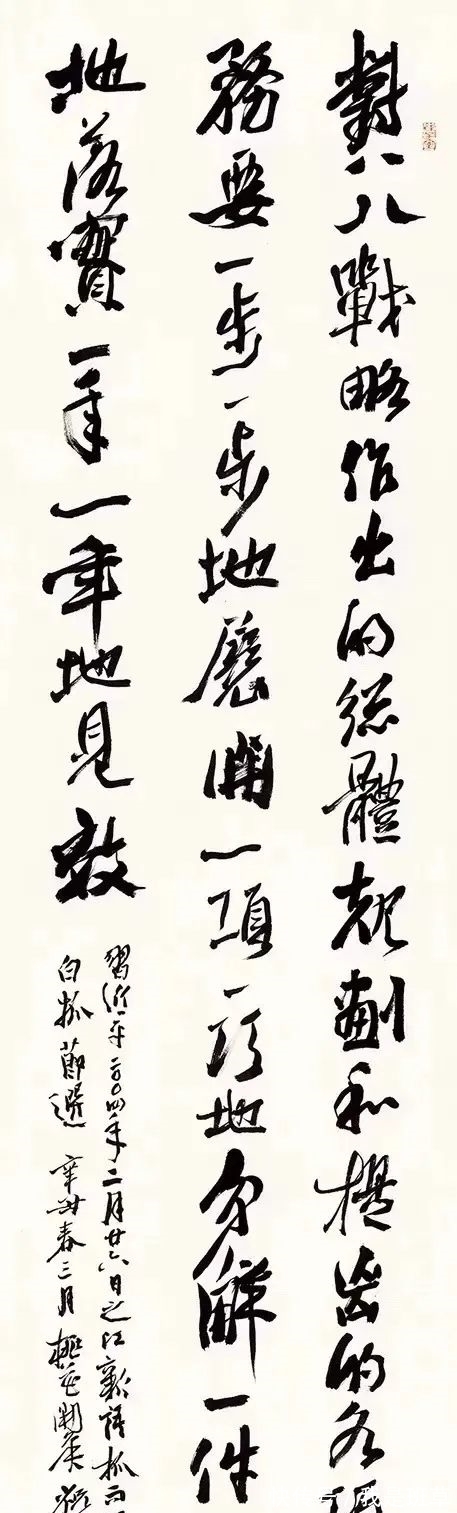 對八八戰略作出的總體規劃和提出的各
務要一步一步地展開一項一項地分解一件
地落實一年一年地見效
習近平二〇〇四年二月廿六日之江新語抓而
白抓節選 辛丑春三月桃花開候